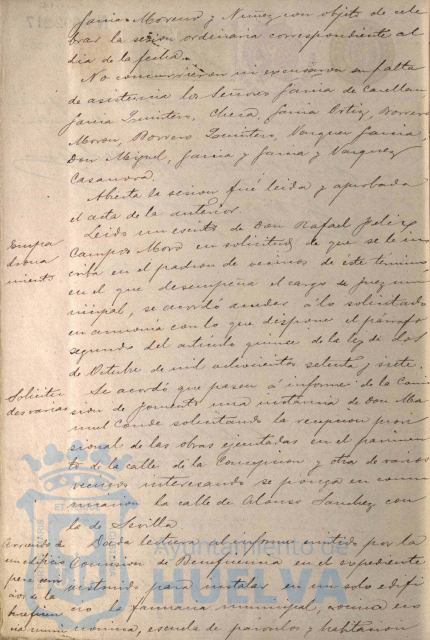 García Moreno y Nuñez con objeto de cele
brar la sesion ordinaria correspondiente al
dia de la fecha.
No concurrieron ni excusaron su falta
de asistencia los Señores García de Casellan
García Quintero, Chesa, García Ortiz, Borrero
Moron, Borrero Quintero, Vazquez García,
Don Miguel, García y García y Vazquez
Casanova.
Abierta la sesion fué leida y aprobada
el acta de la anterior.
Empa
drona
miento
Leido un escrito de Don Rafael Feliz
Campos Moro en solicitud de que se le ins
criba en el padron de vecinos de este término,
en el que desempeña el cargo de Juez mu
nicipal, se acordó acceder á lo solicitado
en armonia con lo que dispone el párrafo
segundo del articulo quince de la ley de dos
de Octubre de mil ochocientos setenta y siete.
Solicitu
des varias
Se acordó que pasen á informe de la Comi
sion de Fomento una instancia de Don Ma
nuel Conde solicitando la recepcion provi
sional de las obras ejecutadas en el pavimen
to de la calle de la Concepcion y otra de varios
vecinos interesando se ponga en comu
nicacion la calle de Alonso Sanchez con
la de Sevilla.
Arriendo de
un edificio
para servi
cios de la
beneficen
cia muni
Dada lectura al informe emitido por la
Comision de Beneficencia en el expediente
instruido para instalar en un solo edifi
cio la farmacia municipal, cocina eco
nomica, escuela de párvulos y habitacion
Ayuntamiento de
HUELVA